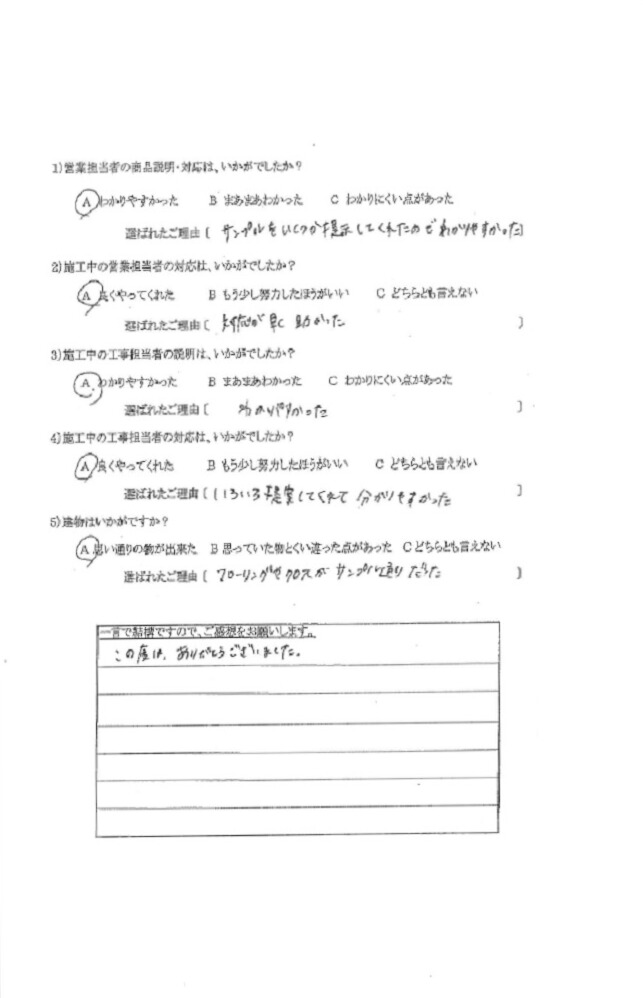 1)営業担当者の商品説明・対応は、いかがでしたか?
A わかりやすかった B まあまあわかった C わかりにくい点があった
選ばれたご理由〔 サンプルをいくつか提示してくれたのでわかりやすかった〕
2)施工中の営業担当者の対応は、いかがでしたか?
A 良くやってくれた B もう少し努力したほうがいい C どちらとも言えない
選ばれたご理由〔 対応が早く助かった 〕
3)施工中の工事担当者の説明は、いかがでしたか?
A わかりやすかった B まあまあわかった C わかりにくい点があった
選ばれたご理由〔 わかりやすかった 〕
4)施工中の工事担当者の対応は、いかがでしたか?
A 良くやってくれた B もう少し努力したほうがいい C どちらとも言えない
選ばれたご理由〔 いろいろ提案してくれて 分かりやすかった 〕
5)建物はいかがですか?
A 思い通りの物が出来た B 思っていた物とくい違った点があった C どちらとも言えない
選ばれたご理由〔 フローリングやクロスがサンプル通りだった 〕
一言で結構ですので、ご感想をお願いします。
この度は、ありがとうございました。